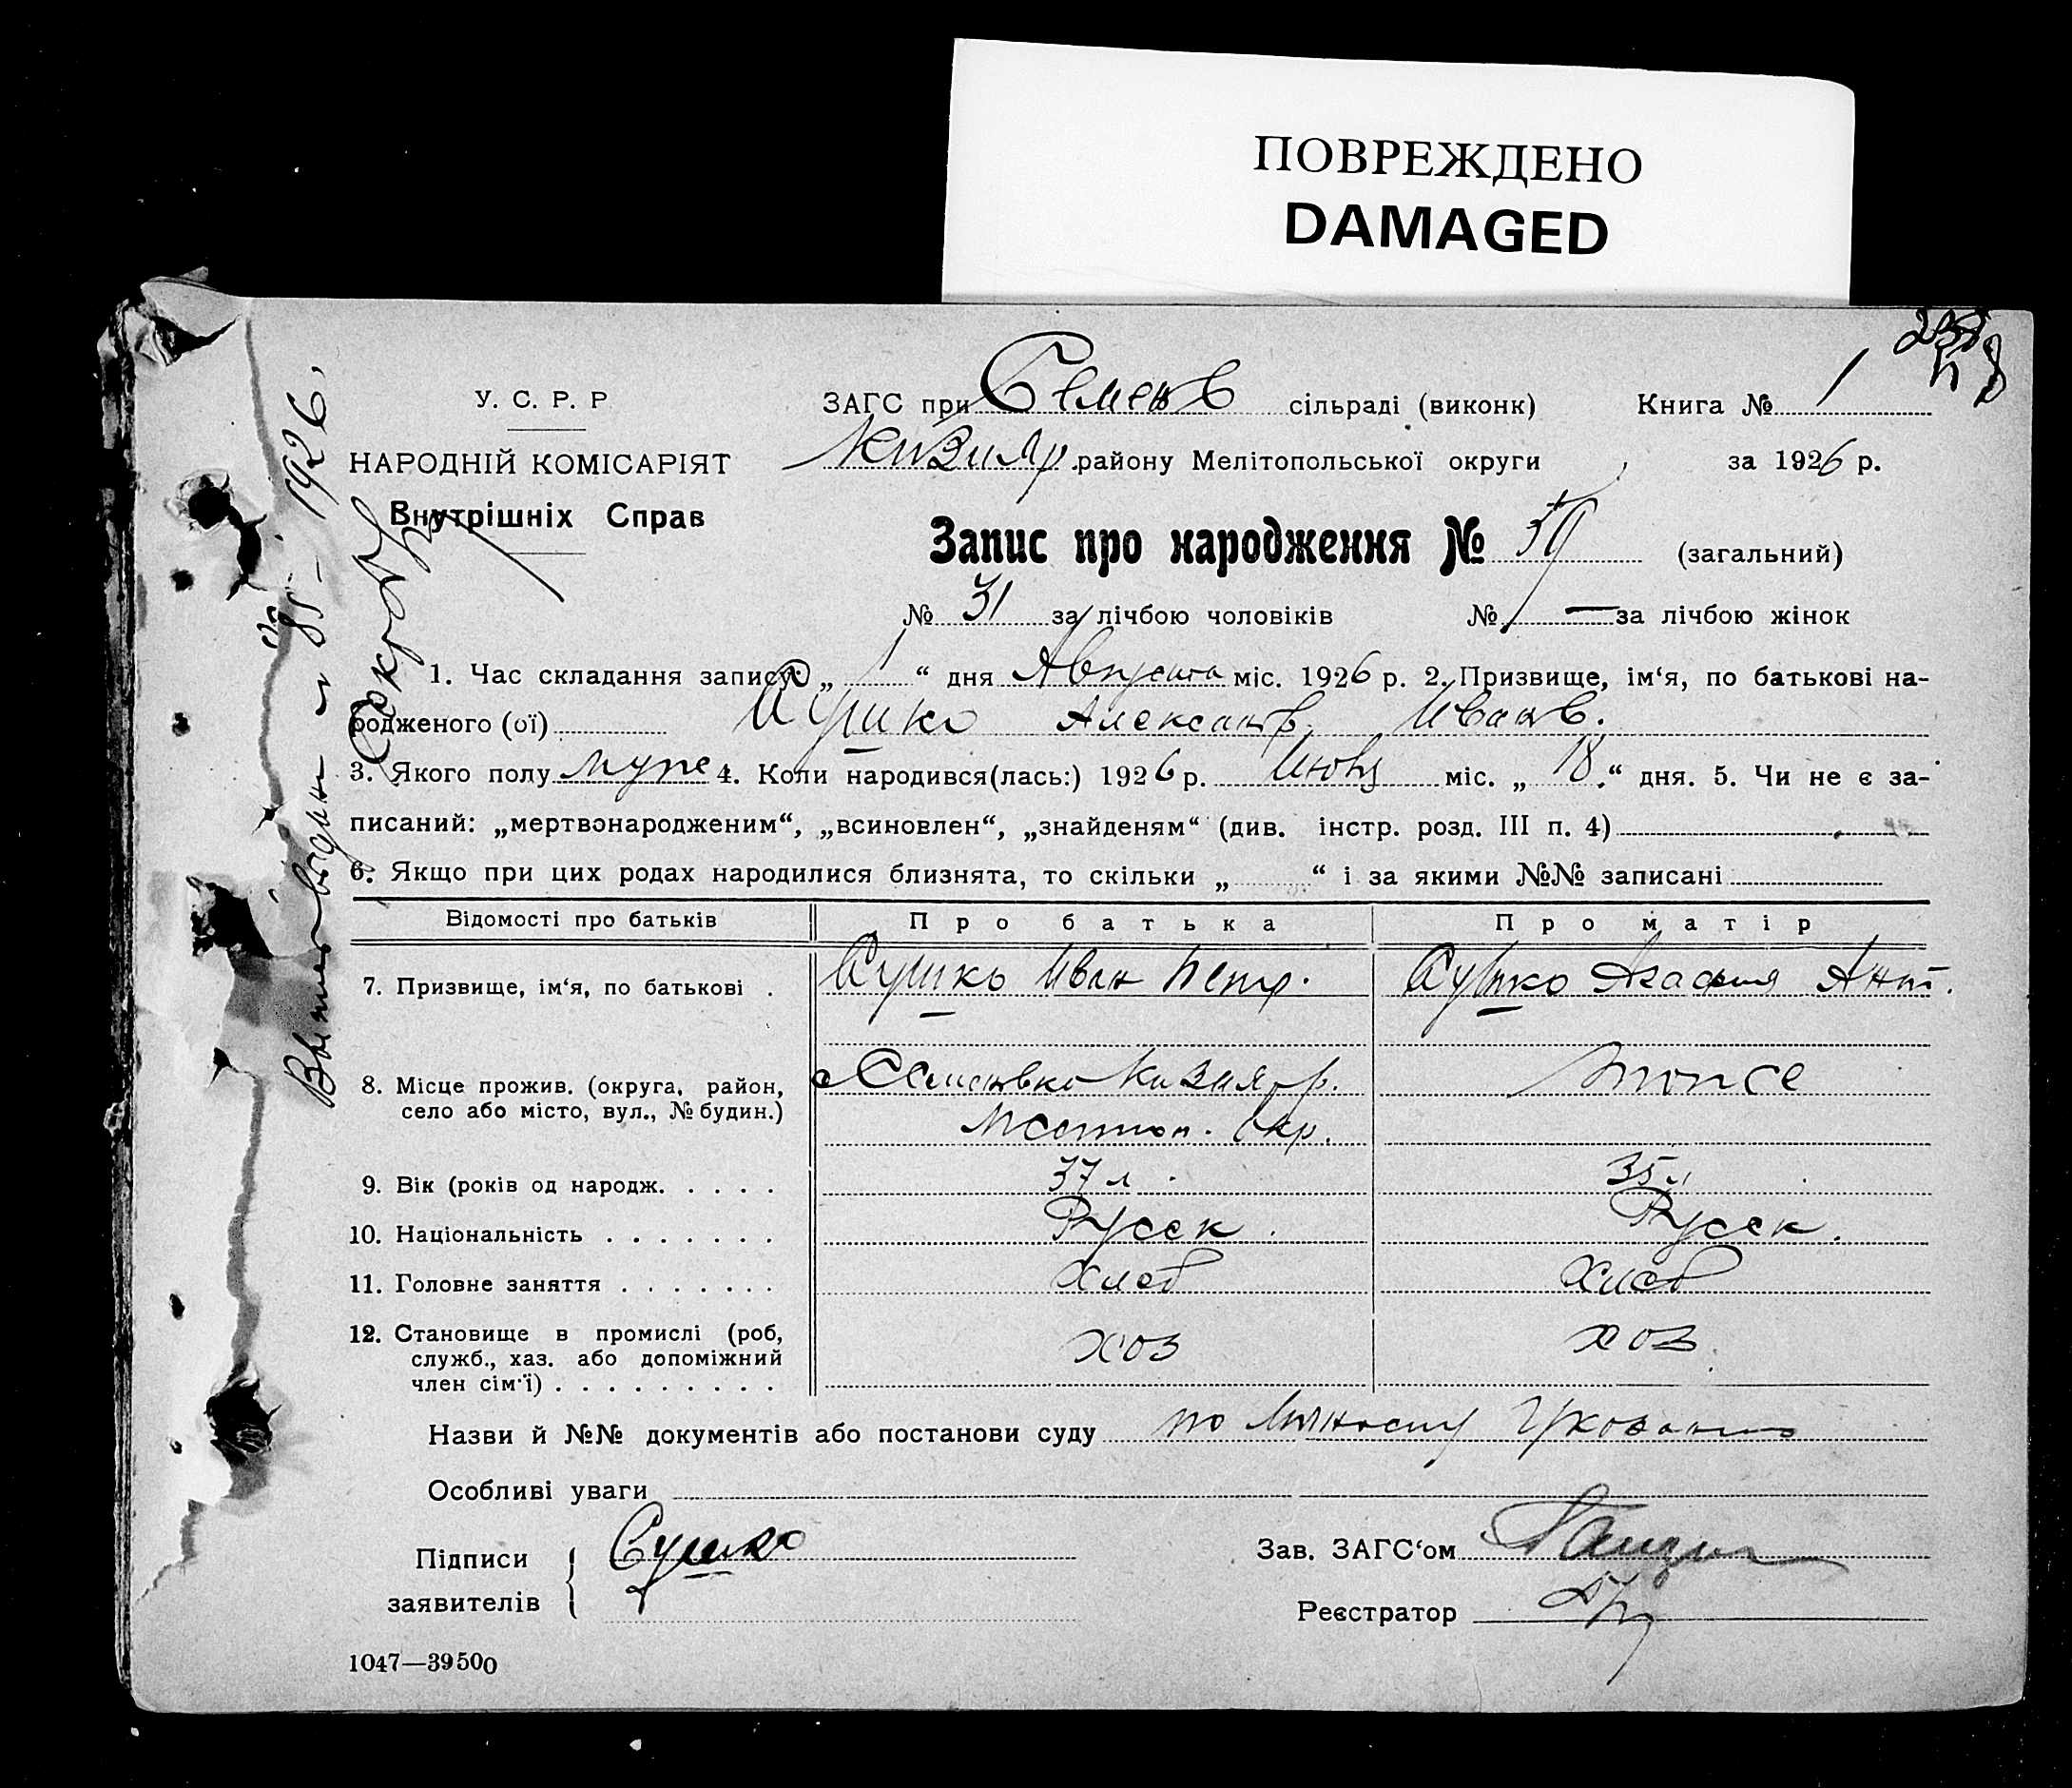 ПОВРЕЖДЕНО
DAMAGED
У. С. Р. Р
НАРОДНІЙ КОМІСАРІЯТ
Внутрішніх Справ
ЗАГС при Семенов сільраді (виконк) Книга № 1
Кизияр. району Мелітопольської округи за 1926 р.
Запис про народження № 59 (загальний)
№ 31 за лічбою чоловіків № — за лічбою жінок
1. Час складання запису „ 1 “ дня Августа міс. 1926 р. 2. Призвище, ім‘я, по батькові на-
родженого (ої) Сушко Александр. Иванов.
3. Якого полу муж 4. Коли народився(лась:) 1926 р. Июня міс. „ 18 “ дня. 5. Чи не є за-
писаний: „мертвонародженим“, „всиновлен“, „знайденям“ (див. інстр. розд. III п. 4)
6. Якщо при цих родах народилися близнята, то скільки „ “ і за якими №№ записані
Відомості про батьків Про батька Про матір
7. Призвище, ім‘я, по батькові . Сушко Иван Петр. Сушко Агафия Ант.
8. Місце прожив. (округа, район, село або місто, вул., № будин.) с Семеновка Кизияр р. тоже
Мелитоп. Окр.
9. Вік (років од народж. . . . . 37 л 35 л
10. Національність . . . . . . . Русск. Русск.
11. Головне заняття . . . . . . . Хлеб Хлеб
12. Становище в промислі (роб, служб., хаз. або допоміжний член сім‘ї) . . . . . . . . . хоз хоз
Назви й №№ документів або постанови суду по личному
Особливі уваги
Підписи заявителів Сушко
Зав. ЗАГС‘ом
Реєстратор
1047—39500
1926.